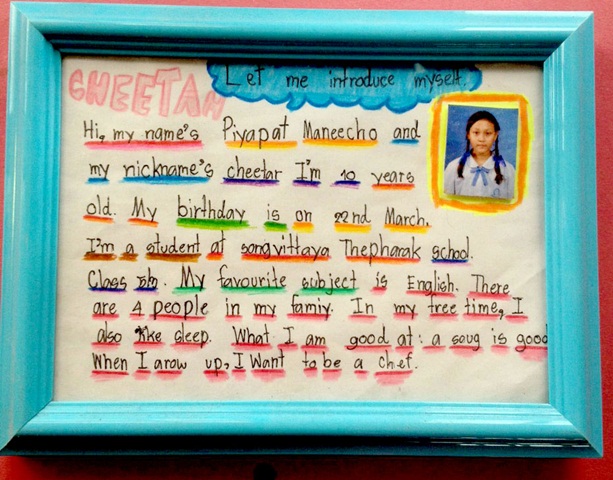 CHEETAH
Let me introduce myself.
Hi, my name's Piyapat Maneecho and
my nickname's cheetar I'm 10 years
old. My birthday is on 22nd March.
I'm a student at songvittaya Thepharak school.
Class 5/6. My favourite subject is English. There
are 4 people in my famiy. In my free time, I
also like sleep. What I am good at : a soug is good
When I arow up, I Want to be a chef.